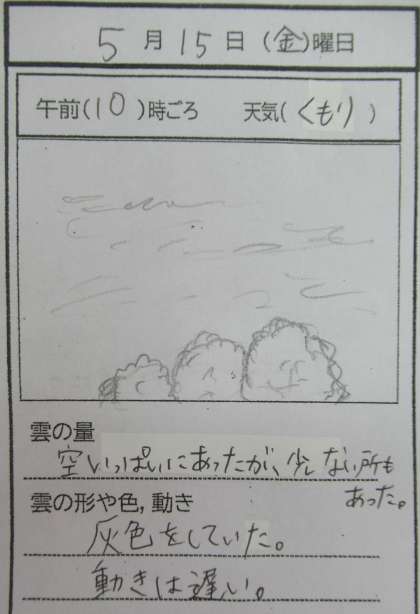 5月15日(金)曜日
午前(10)時ごろ 天気(くもり)
雲の量
空いっぱいにあったが、少しない所も
あった。
雲の形や色,動き
灰色をしていた。
動きは遅い。